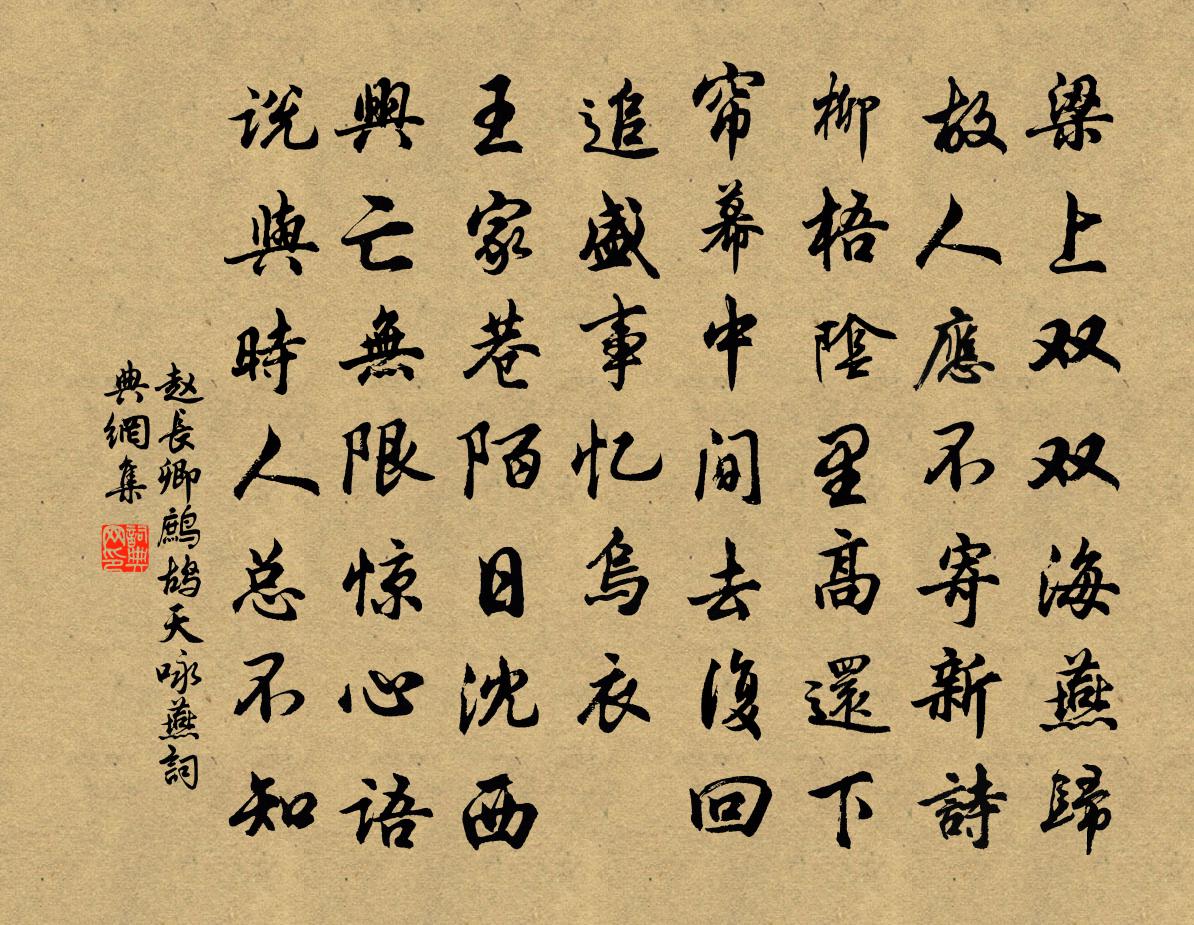 梁上双双海燕歸
故人應不寄新詩
柳梧陰里高還下
帘幕中间去復回
追盛事忆烏衣
王家巷陌日沈西
興亡無限惊心语
说與時人总不知
赵長卿鷓鴣天咏燕詞
典網集
詞典网印